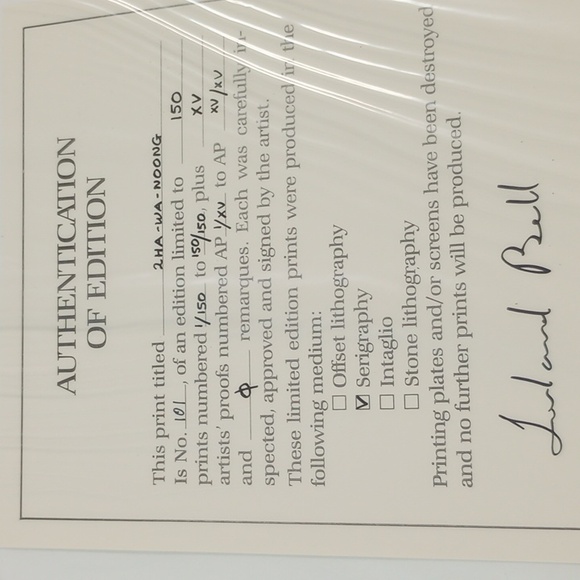 AUTHENTICATION
OF EDITION
This print titled 2HA-WA-NOONG
Is No. 101, of an edition limited to 150
prints numbered 1/150 to 150/150, plus XV
artists' proofs numbered AP 1/XV to AP XV/XV
and ϕ remarques. Each was carefully in-
spected, approved and signed by the artist.
These limited edition prints were produced in the
following medium:
☐ Offset lithography
☑ Serigraphy
☐ Intaglio
☐ Stone lithography
Printing plates and/or screens have been destroyed
and no further prints will be produced.
Leland Bell